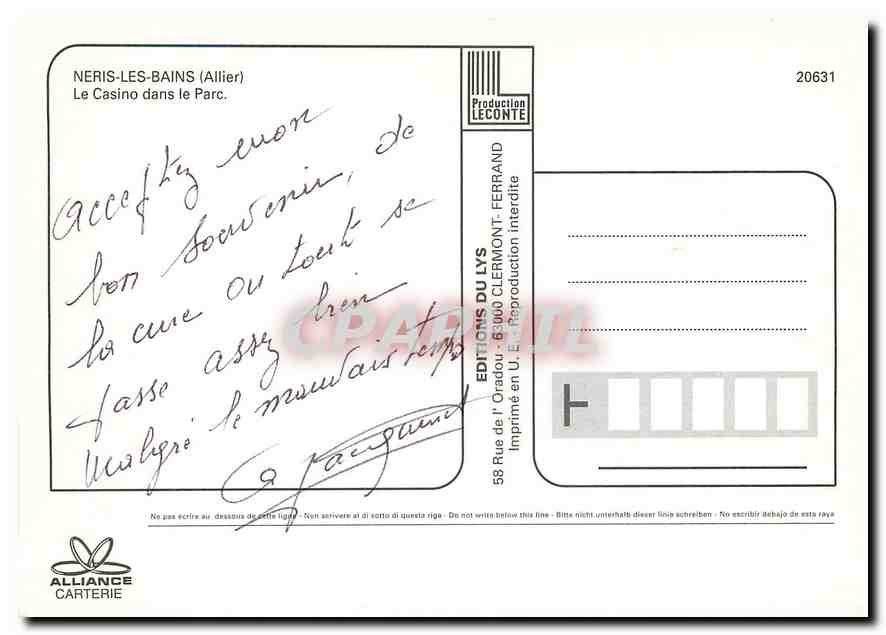 NERIS-LES-BAINS (Allier)
Le Casino dans le Parc.
Acceptez mon
bon souvenir, de
la cure ou tout se
passe assez bien
Malgré le mauvais temps
Production
LECONTE
20631
EDITIONS DU LYS
58 Rue de l' Oradou - 63000 CLERMONT- FERRAND
Imprimé en U. E. - Reproduction interdite
CPAPHIL
Ne pas écrire au dessous de cette ligne - Non scrivere al di sotto di questa riga - Do not write below this line - Bitte nicht unterhalb dieser linie schreiben - No escribir debajo de esta raya
ALLIANCE
CARTERIE